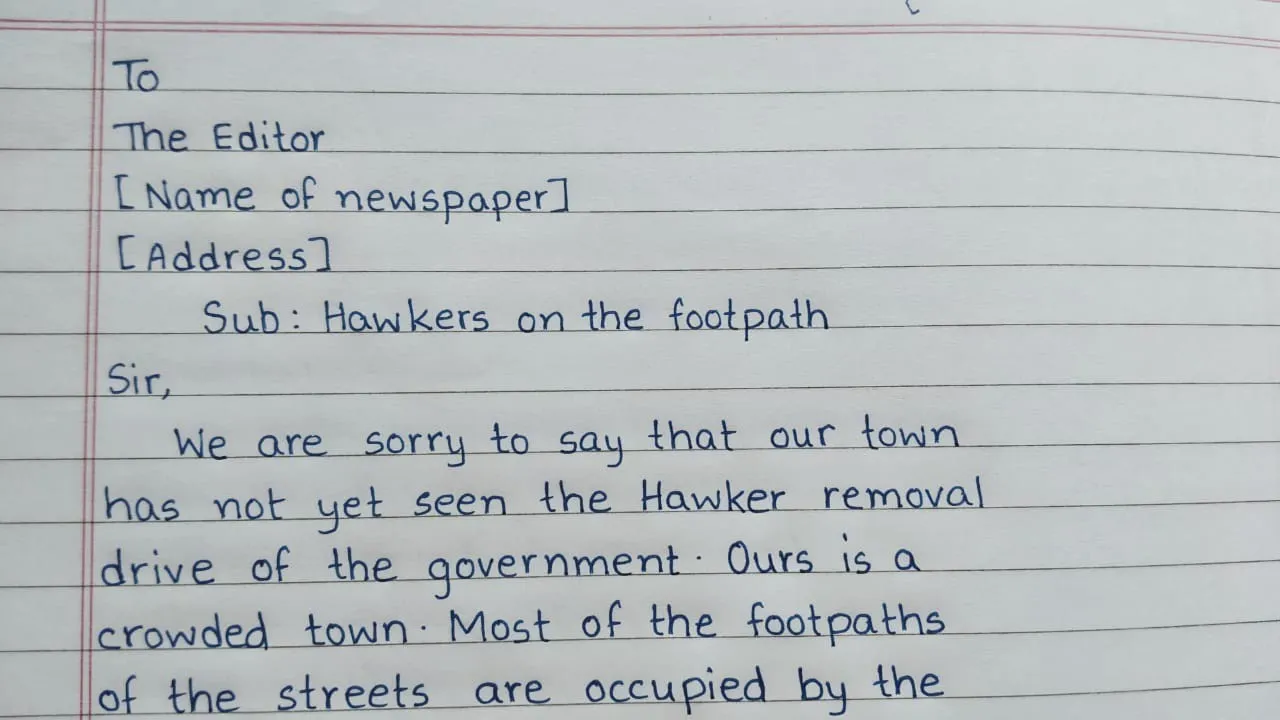 To
The Editor
[Name of newspaper]
[Address]
Sub: Hawkers on the footpath
Sir,
We are sorry to say that our town
has not yet seen the Hawker removal
drive of the government. Ours is a
crowded town. Most of the footpaths
of the streets are occupied by the